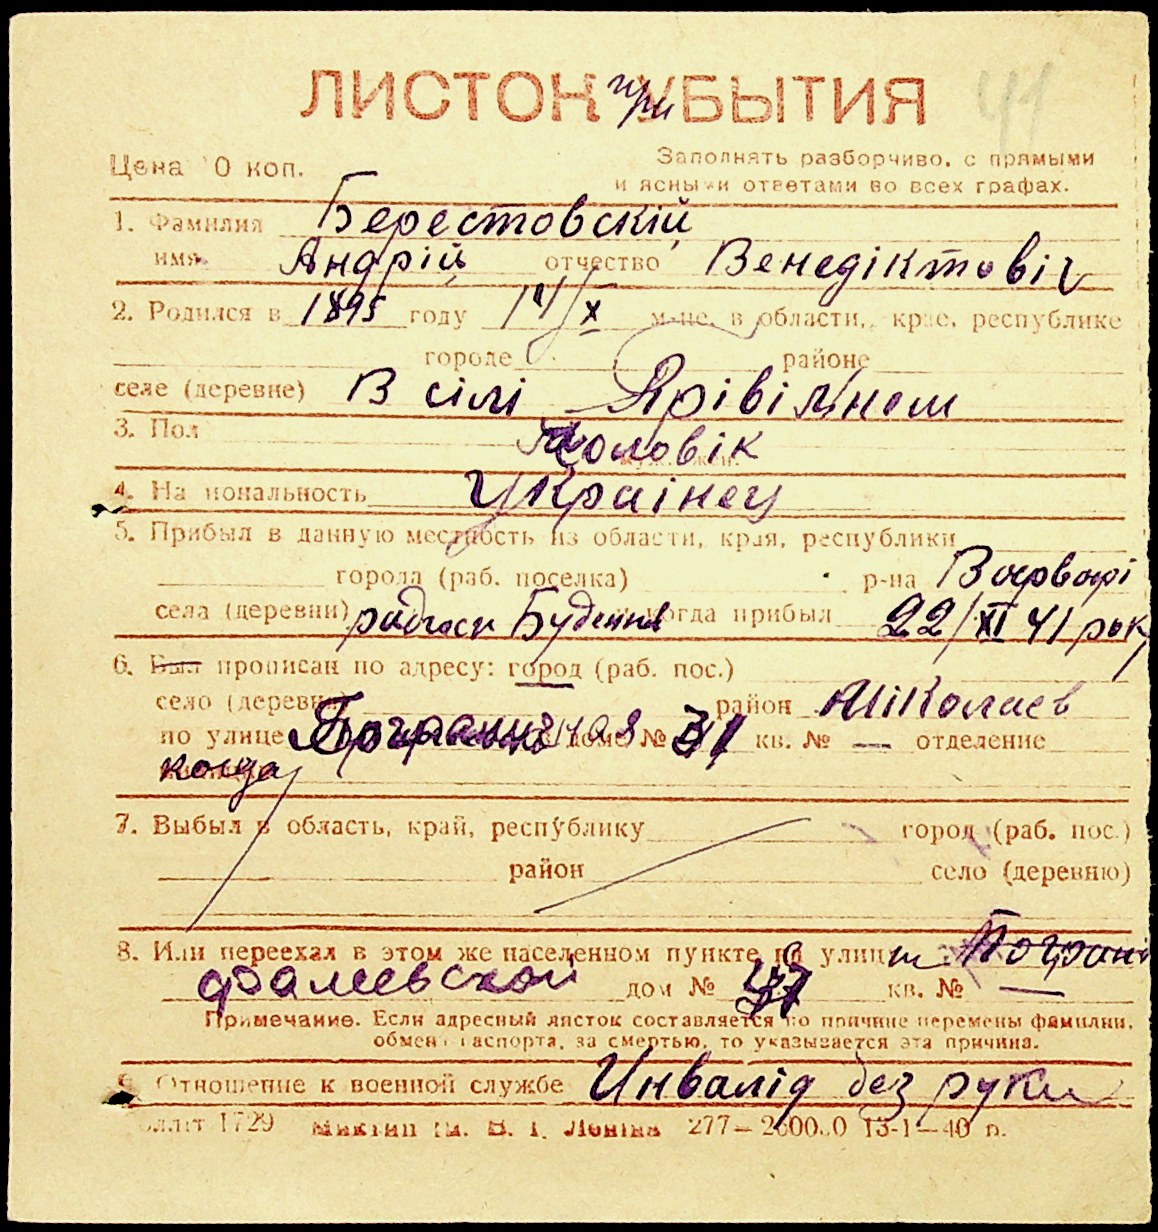 41
ЛИСТОК при УБЫТИЯ
Цена 10 коп. Заполнять разборчиво, с прямыми
и ясными ответами во всех графах.
1. Фамилия Берестовскій
имя Андрій отчество Венедіктовіч
2. Родился в 1895 году 14/X м-це, в области, крае, республике
городе районе
селе (деревне) В сілі
3. Пол Чоловік
4. Национальность Украінец
5. Прибыл в данную местность из области, края, республики
города (раб. поселка) р-на
села (деревни) радгосп и когда прибыл 22/XI 41 рок
6. Был прописан по адресу: город (раб. пос.)
село (деревня) район Ніколаев
по улице дом № кв. № — отделение
когда
7. Выбыл в область, край, республику город (раб. пос.)
район село (деревню)
8. Или переехал в этом же населенном пункте на улицу
Фалеевской дом № кв. № —
Примечание. Если адресный листок составляется по причине перемены фамилии,
обмена паспорта, за смертью, то указывается эта причина.
9. Отношение к военной службе Инвалід без руки
1729 им. В. І. Леніна 277— 13-1—40 р.